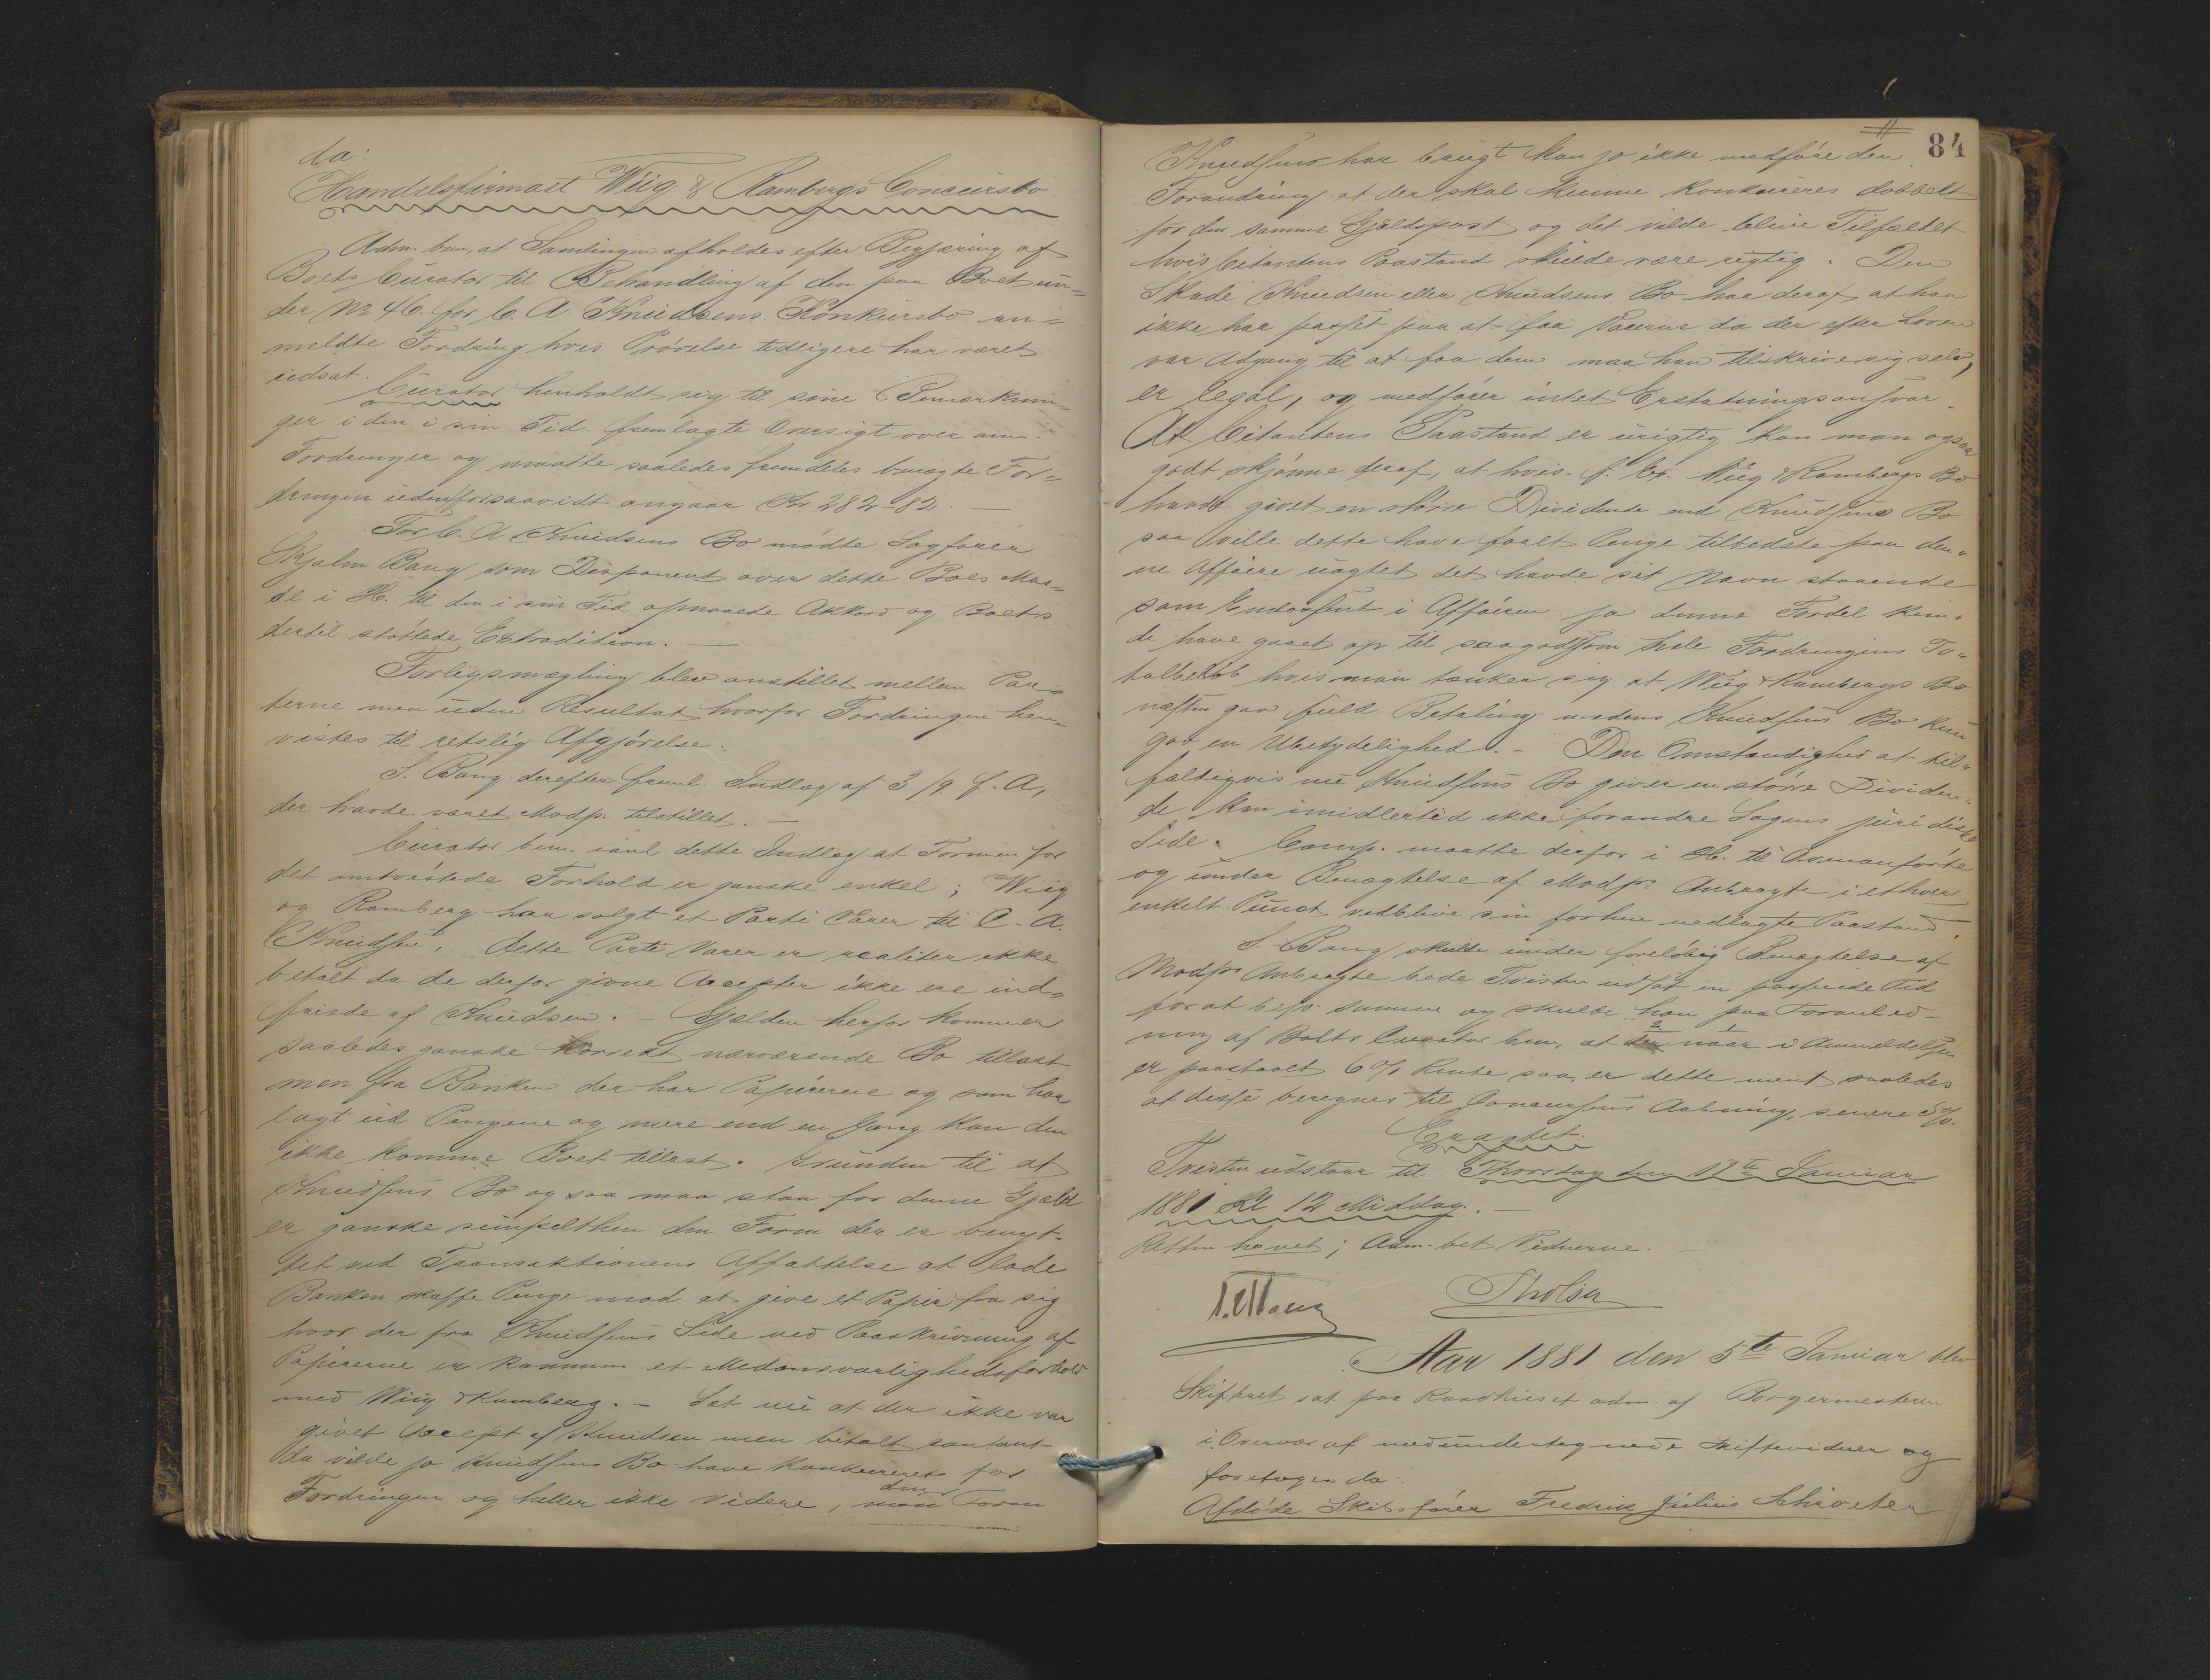 da:
Handelsfirmaet Wiig & Rambergs Concursbo
Adm. bem, at Samlingen afholdes efter Begjæring af
Boets Curator til Behandling af den paa Boet un=
der No 46. for C. A. Knudsens Konkursbo an=
meldte Fordring hvis Prøvelse tidligere har været
udsat.
Curator henholdt sig til sine Bemærknin=
ger i den i sin Tid fremlagte Oversigt over anm.
Fordringer og maatte saaledes fremdeles benægte For=
dringen udenforsaavidt angaar Kr. 282-82. —
For C. A Knudsens Bo mødte Sagfører
Skjalm Bang som Disponent over dette Boes Mas=
se i H. til den i sin Tid opnaaede Akkord og Boets
dertil støttede Extradition. —
Forligsmægling blev anstillet mellem Par=
terne men uden Resultat hvorfor Fordringen hen=
vistes til retslig Afgjørelse.
S. Bang derefter freml. Indlæg af 3/9 f. A,
der havde været Modp. tilstillet. —
Curator bem. i anl dette Indlæg at Formen for
det omtvistede Forhold er ganske enkel; Wiig
og Ramberg har solgt et Parti Varer til C. A.
Knudsen. Dette Parti Varer er realiter ikke
betalt da de derfor givne Accepter ikke ere ind=
friede af Knudsen. — Gjælden herfor kommer
saaledes ganske korrekt nærværende Bo tillast
men fra Banken der har Papirerne og som har
lagt ud Pengene og mere end en Gang kan den
ikke komme Boet tillast. Grunden til at
Knudsens Bo ogsaa maa staa for denne Gjæld
er ganske simpelthen den Form der er benyt=
tet ved Transaktionens Affattelse at lade
Banken skaffe Penge mod at give et Papir fra sig
hvor der fra Knudsens Side ved Paaskrivning af
Papirerne er kommen et Medansvarlighedsforhold
med Wiig & Ramberg. — Sæt nu at der ikke var
givet Accept af Knudsen men betalt contant
da vilde jo Knudsens Bo have konkurreret for
Fordringen og heller ikke videre, men den Form
84
Knudsens har brugt kan jo ikke medføre den
Forandring at der skal kunne konkurreres dobbelt
for den samme Gjældspost og det vilde blive Tilfældet
hvis Citantens Paastand skulde være rigtig. Den
Skade Knudsen eller Knudsens Bo har deraf at han
ikke har passet paa at faa Varerne da der efter Loven
var Adgang til at faa dem maa han tilskrive sig selv,
er legal, og medfører intet Erstatningsansvar.
At Citantens Paastand er urigtig kan man ogsaa
godt skjønne deraf, at hvis f. Ex. Wiig & Rambergs Bo
havde givet en større Dividende end Knudsens Bo
saa ville dette have faalt Penge tilbedste paa den=
ne Affaire uagtet det havde sit Navn staaende
som Endossent i Affairen ja denne Fordel kun=
de have gaaet op til saagodtsom hele Fordringens To=
talbeløb hvis man tænker sig at Wiig & Rambergs Bo
næsten gav fuld Betaling medens Knudsens Bo kun
gav en Ubetydelighed. — Den Omstændighed at til=
fældigvis nu Knudsens Bo giver en større Dividen=
de kan imidlertid ikke forandre Sagens juridiske
Side. Comp. maatte derfor i H. til Ovenanførte
og under Benægtelse af Modp. Anbragte i ethvert
enkelt Punct vedblive sin forhen nedlagte Paastand.
S. Bang skulde under foreløbig Benægtelse af
Modps Anbragte bede Tvisten udsat en passende Tid
for at besv. samme og skulde han paa Foranled=
ning af Boets Curator bem, at naar i Anmeldelsen
er paastaaet 6 % Rente saa er dette ment saaledes
at disse beregnes til Concursens Aabning, senere 5 %.
Eragtet:
Tvisten udstaar til Thorsdag den Januar
1881 Kl 12 Middag. —
Retten hævet; Adm. bet Vidnerne. —
S. Bang
Aar 1881 den 5te Januar blev
Skifteret sat paa Raadhuset adm. af Borgermesteren
i Overvær af medundertegnede Skiftevidner og
foretoges da:
Afdøde Skibsfører Fredrik Julius Schrøeter